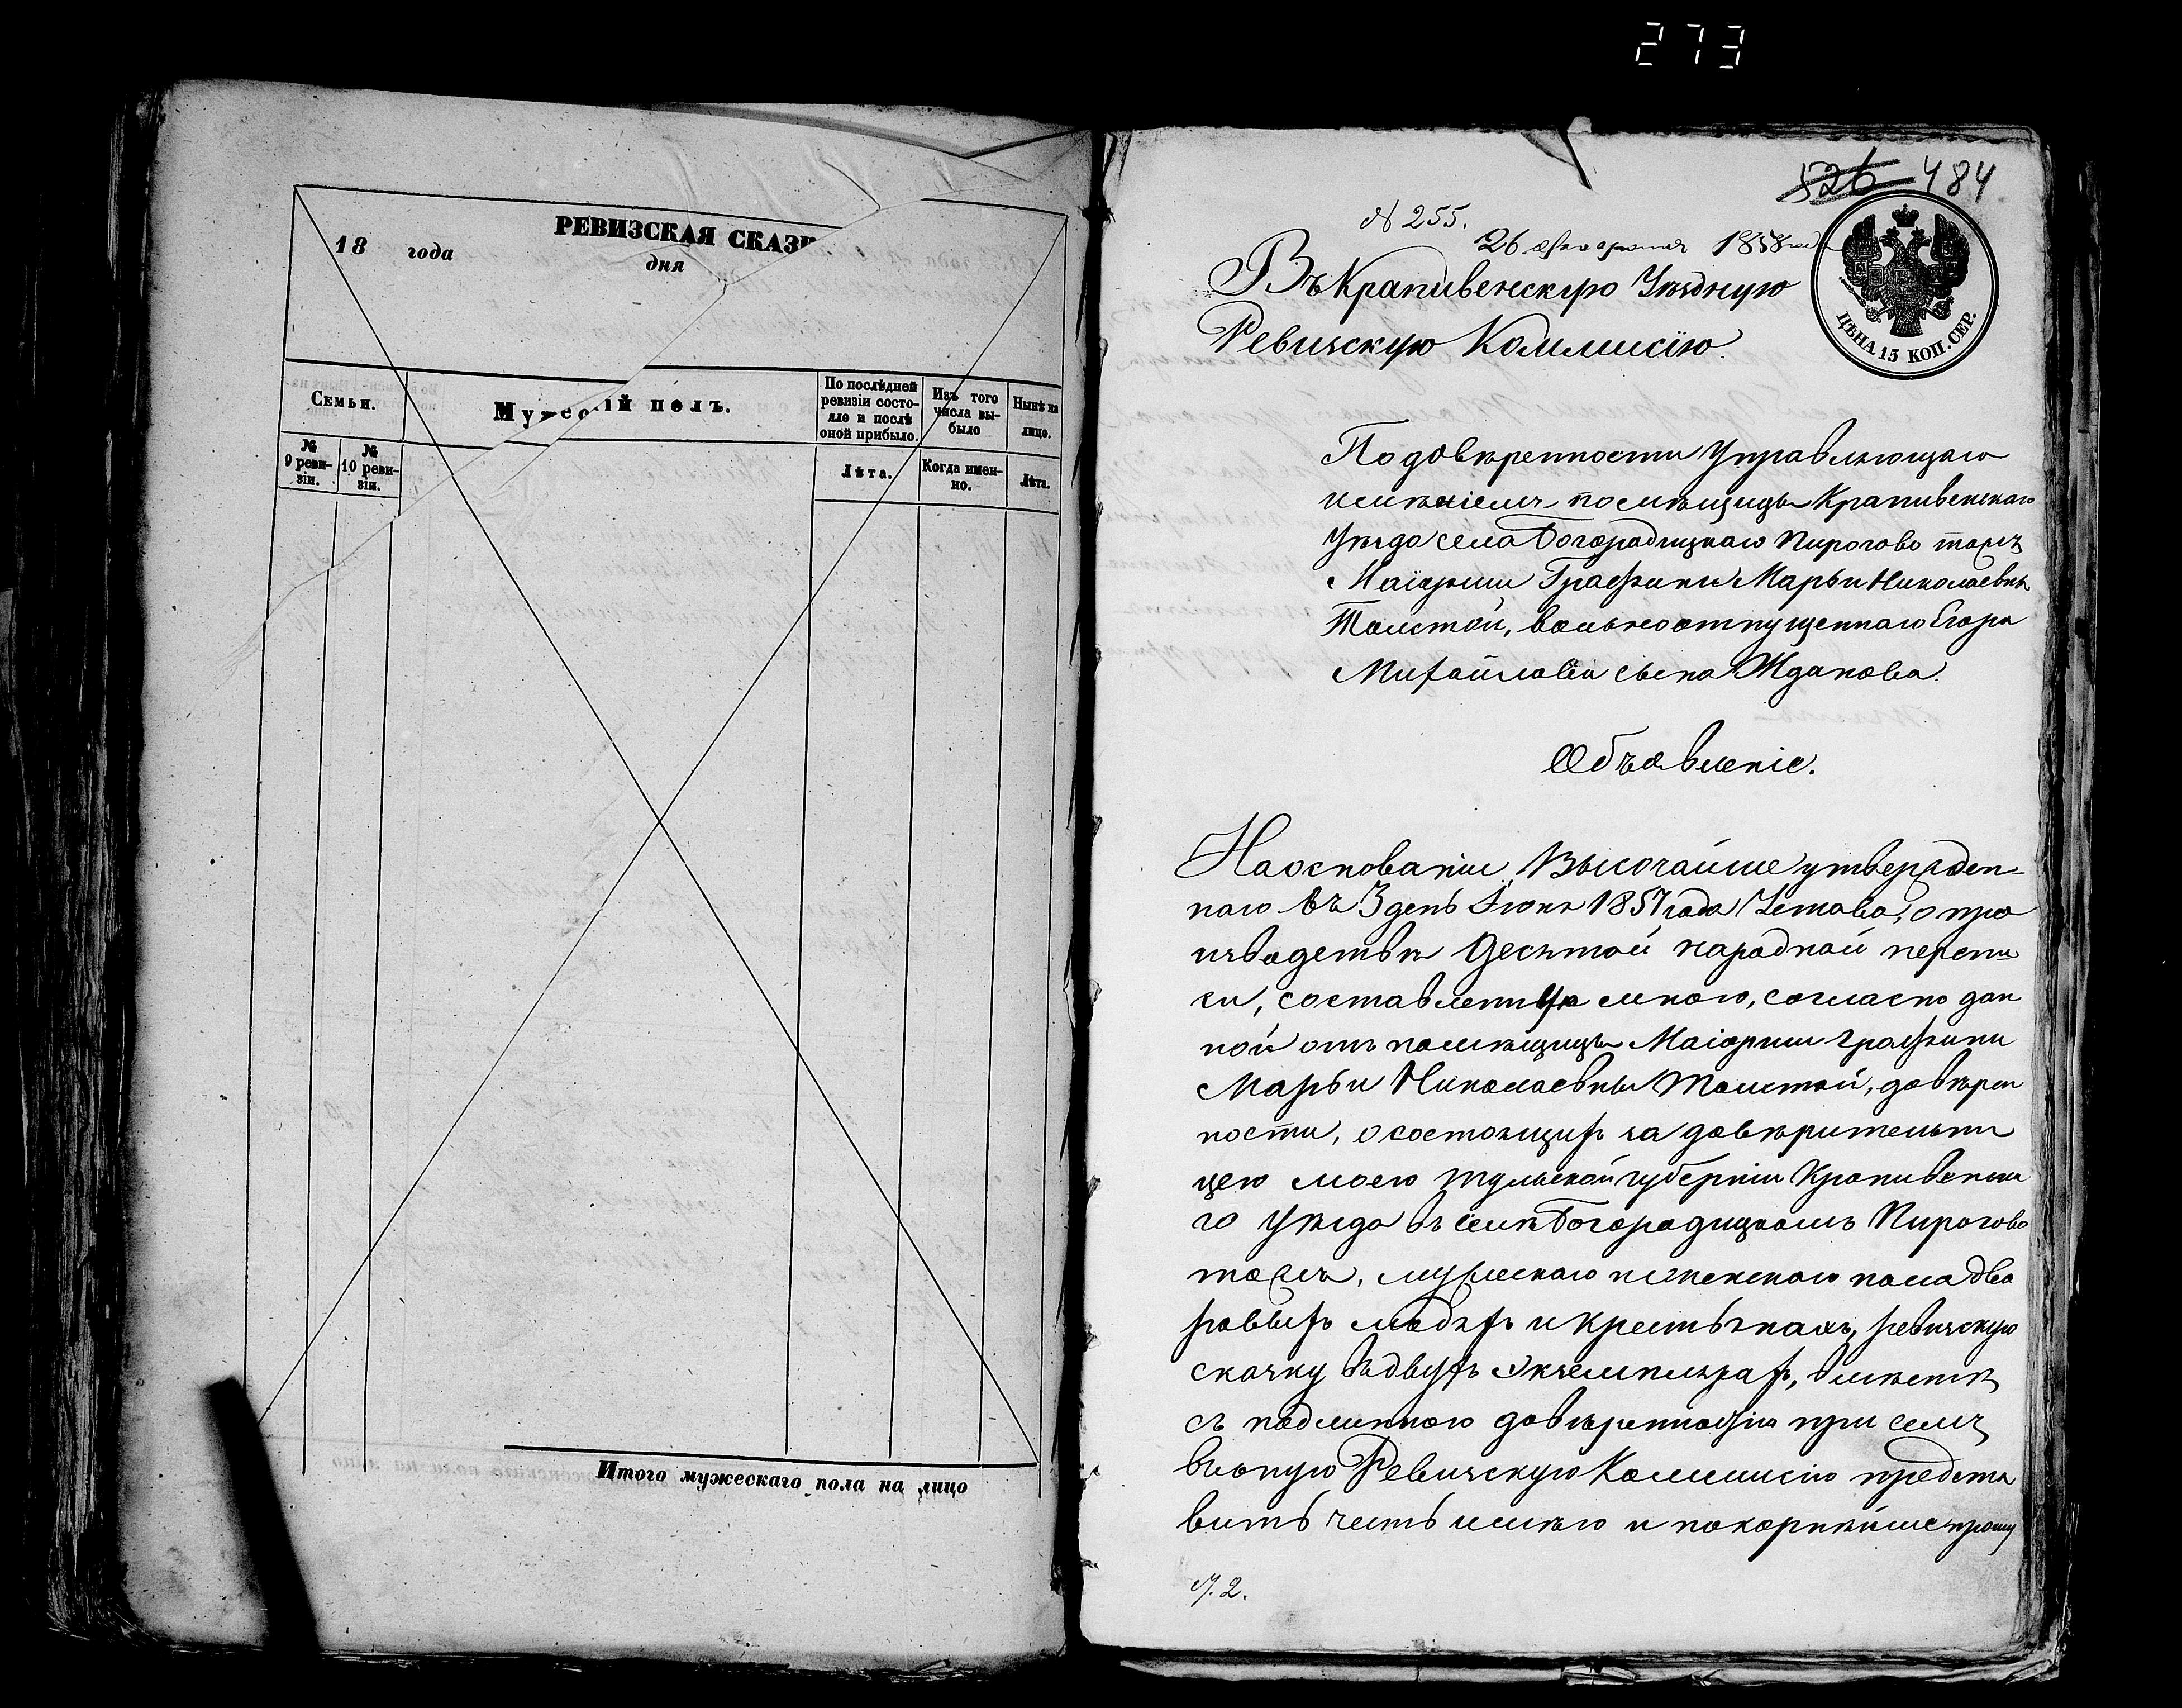 273
РЕВИЗСКАЯ СКАЗК
18 года дня
Семьи.
Мужескій полъ.
По послѣдней ревизіи состояло и послѣ оной прибыло.
Изъ того числа выбыло
Нынѣ на лицо.
№ 9 ревизіи.
№ 10 ревизіи.
Лѣта.
Когда именно.
Лѣта.
Итого мужескаго пола на лицо
526 484
№ 255.
26 февраля 1858 года
ЦѢНА 15 КОП. СЕР.
Въ Крапивенскую Уѣздную
Ревизскую Коммисію.
По довѣренности Управляющаго
имѣніемъ помѣщицы Крапивенскаго
Уѣзда села Богородицкаго Пирогово тожъ
Маіорши Графини Марьи Николаевны
Толстой, вольноотпущеннаго Егора
Михайлова сына Жданова.
Объявленіе.
На основаніи Высочайше утвержден-
наго въ 3 день Іюня 1857 года Устава, о про
изводствѣ десятой народной перепи
си, составленную мною, согласно дан
ной отъ помѣщицы Маіорши Графини
Марьи Николаевны Толстой, довѣрен
ности, о состоящихъ за довѣрительни
цею моею Тульской губерніи Крапивенска
го Уѣзда въ селѣ Богородицкомъ Пирогово
тожъ, мужескаго и женскаго пола дво
ровыхъ людяхъ и крестьянахъ, ревизскую
сказку въ двухъ экземплярахъ, вмѣстѣ
съ подлинною довѣренностію при семъ
въ оную Ревизскую Коммисію предста
вить честь имѣю и покорнѣйше прошу